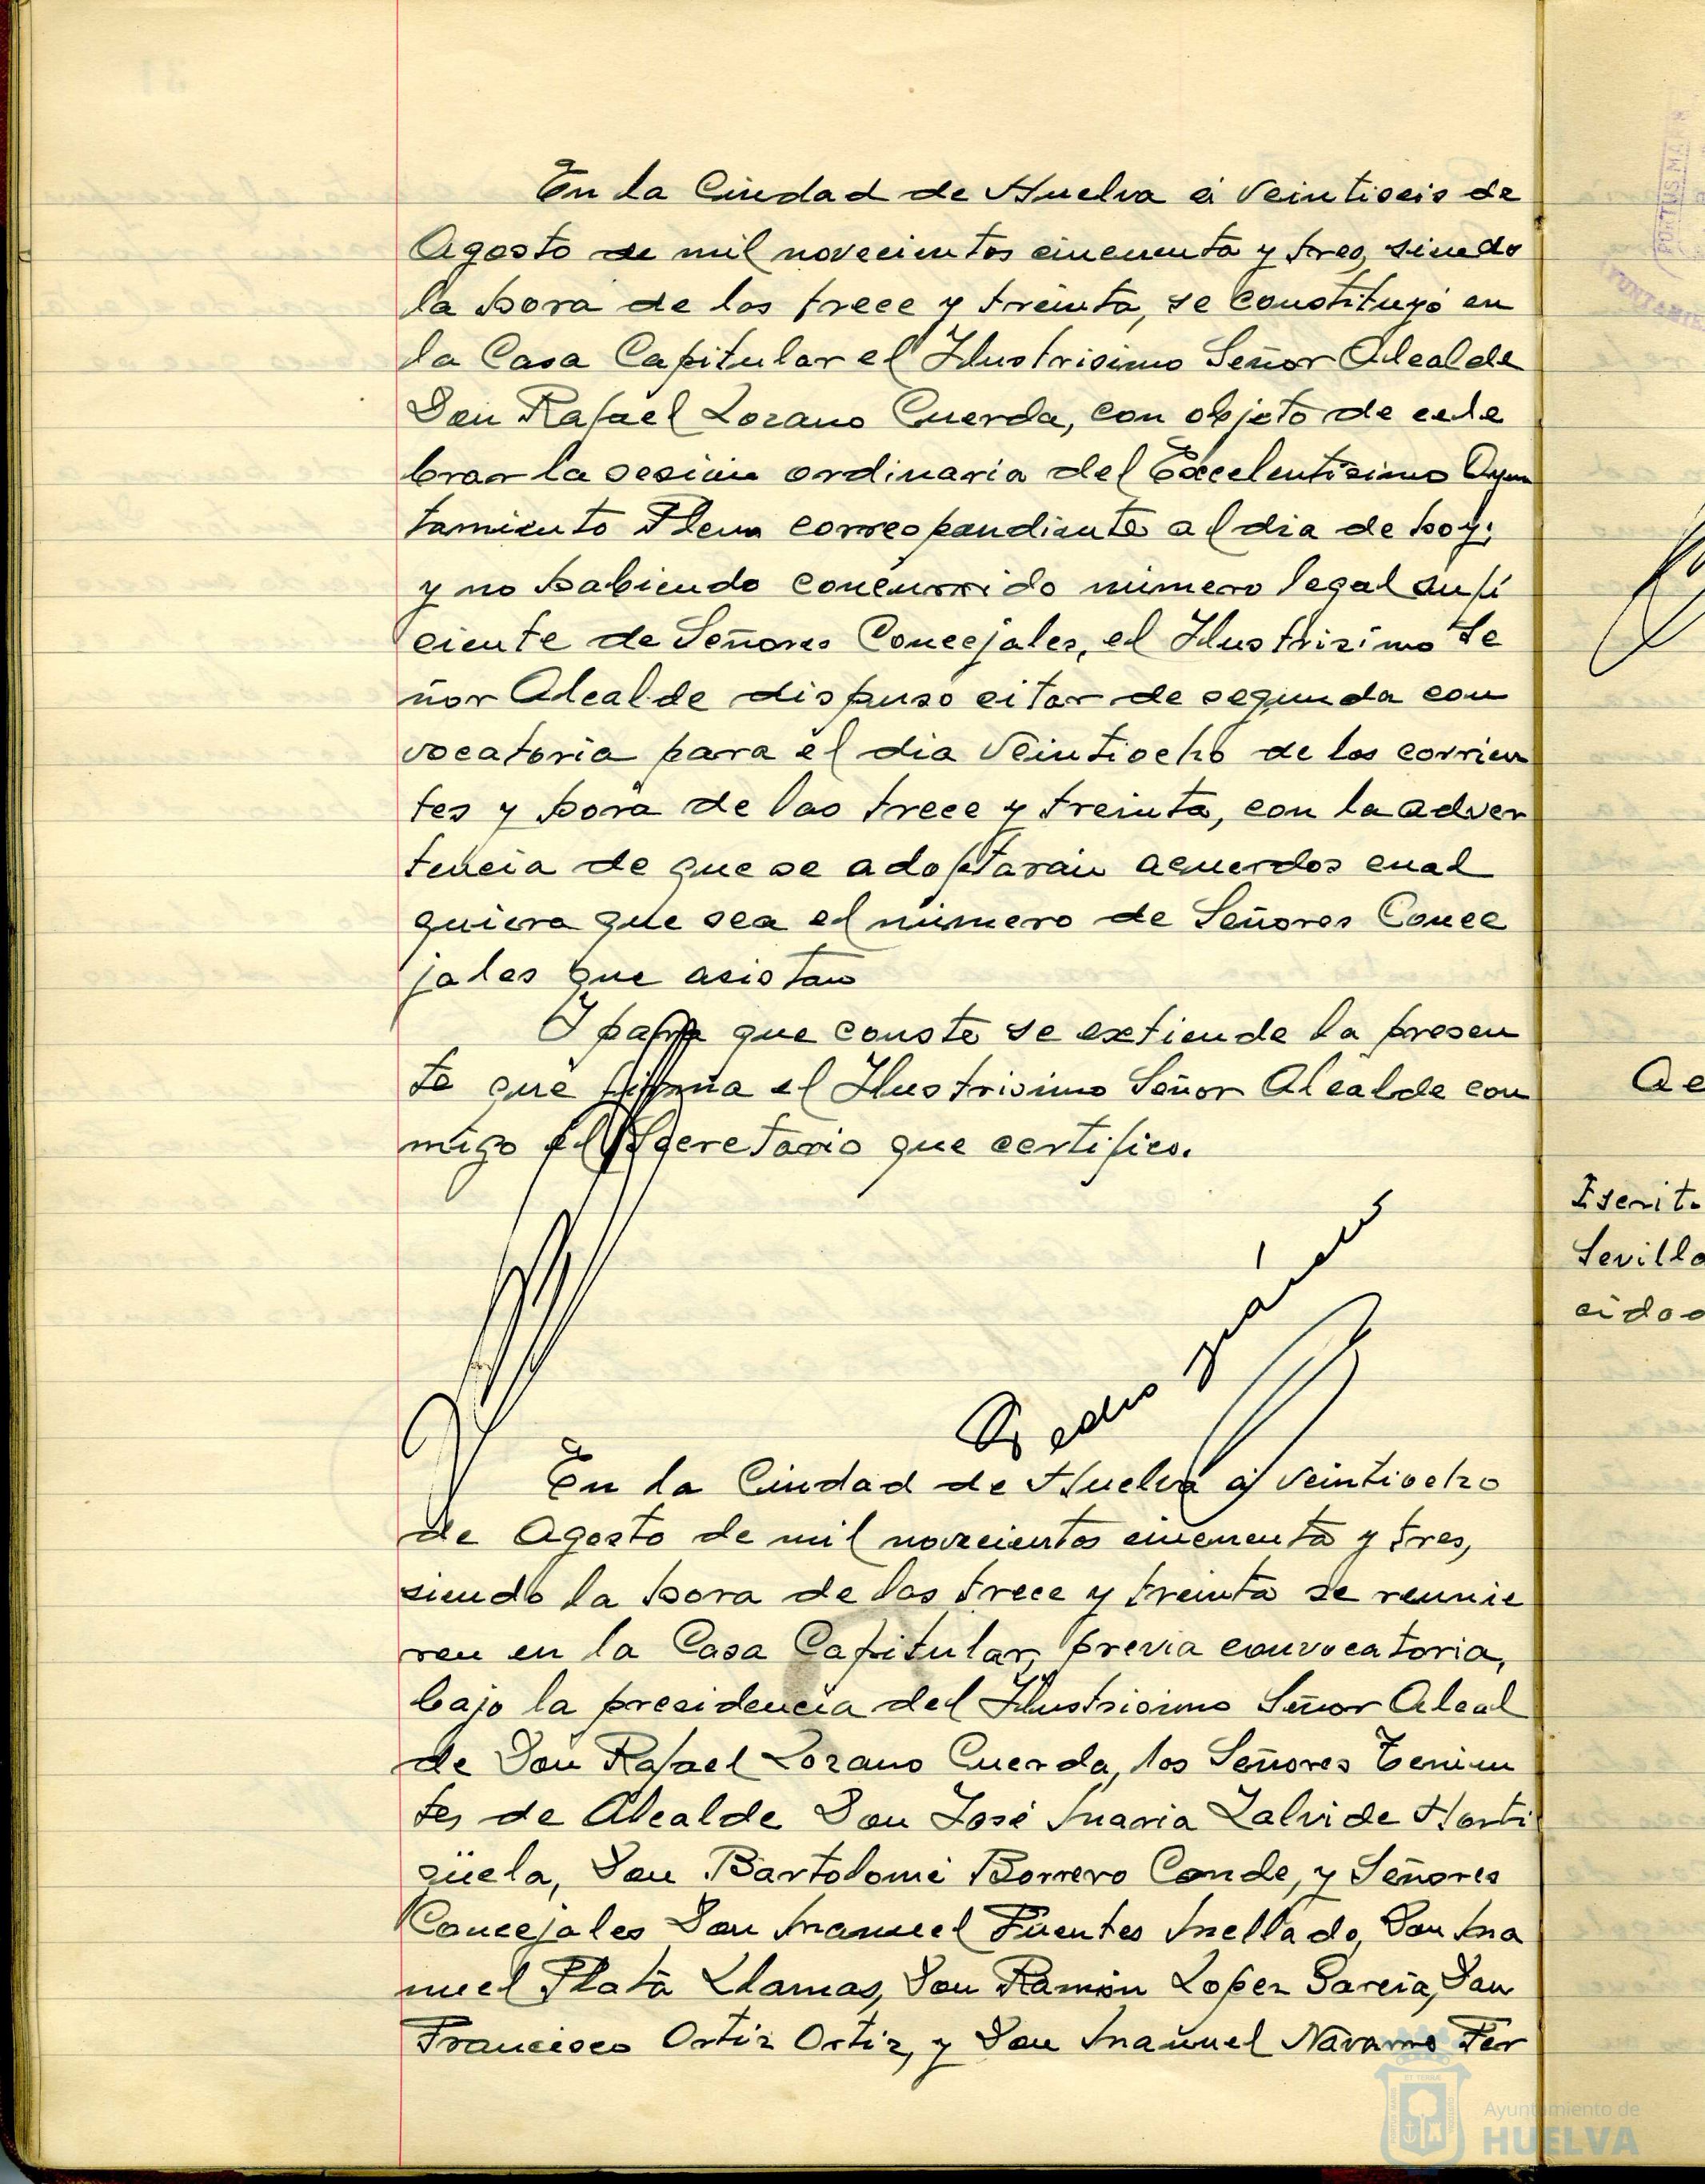 En la Ciudad de Huelva á Veintiseis de
Agosto de mil novecientos cincuenta y tres, siendo
la hora de las trece y treinta, se constituyó en
la Casa Capitular el Ilustrisimo Señor Alcalde
Don Rafael Lozano Cuerda, con objeto de cele
brar la sesión ordinaria del Excelentísimo Ayun
tamiento Pleno correspondiente al dia de hoy;
y no habiendo concurrido número legal sufi
ciente de Señores Concejales, el Ilustrisimo Se
ñor Alcalde dispuso citar de segunda con
vocatoria para el dia Veintiocho de los corrien
tes y hora de las trece y treinta, con la adver
tencia de que se adoptarán acuerdos cual
quiera que sea el número de Señores Conce
jales que asistan
Y para que conste se extiende la presen
te que firma el Ilustrisimo Señor Alcalde con
migo el Secretario que certifico.
Pedro
En la Ciudad de Huelva á Veintiocho
de Agosto de mil novecientos cincuenta y tres,
siendo la hora de las trece y treinta se reunie
ron en la Casa Capitular, previa convocatoria,
bajo la presidencia del Ilustrisimo Señor Alcal
de Don Rafael Lozano Cuerda, los Señores Tenien
tes de Alcalde Don José Maria Zalvide Horti
güela, Don Bartolomé Borrero Conde, y Señores
Concejales Don Manuel Fuentes Mellado, Don Ma
nuel Plata Llamas, Don Ramón Lopez Garcia, Don
Francisco Ortiz Ortiz, y Don Manuel Navarro Fer
Escrit.
Sevilla
cidos
Ayuntamiento de
HUELVA